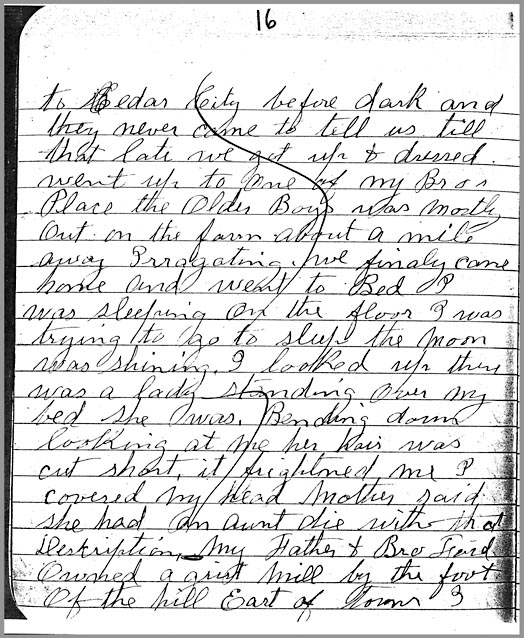 16
to Cedar City before dark and
they never come to tell us till
that late we got up & dressed.
went up to one of my Bros
Place the Older Boys was mostly
Out on the farm about a mile
away Irragating. we finaly came
home and went to Bed I
was sleeping on the floor I was
trying to go to sleep the moon
was shining. I looked up they
was a lady standing over my
bed she was. Bending down
looking at me her hair was
cut short it frightned me I
covered my head Mother said
she had an aunt die with that
Deskription, My Father & Bro Ford
Owned a grist mill by the foot
Of the hill East of Town I